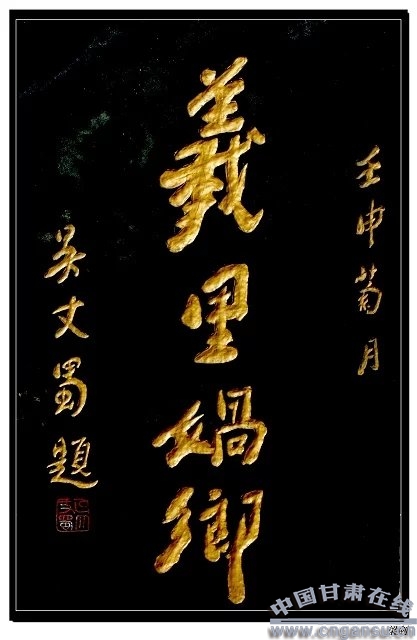 壬申菊月
羲里媧鄉
吴丈蜀題
中国甘肃在线